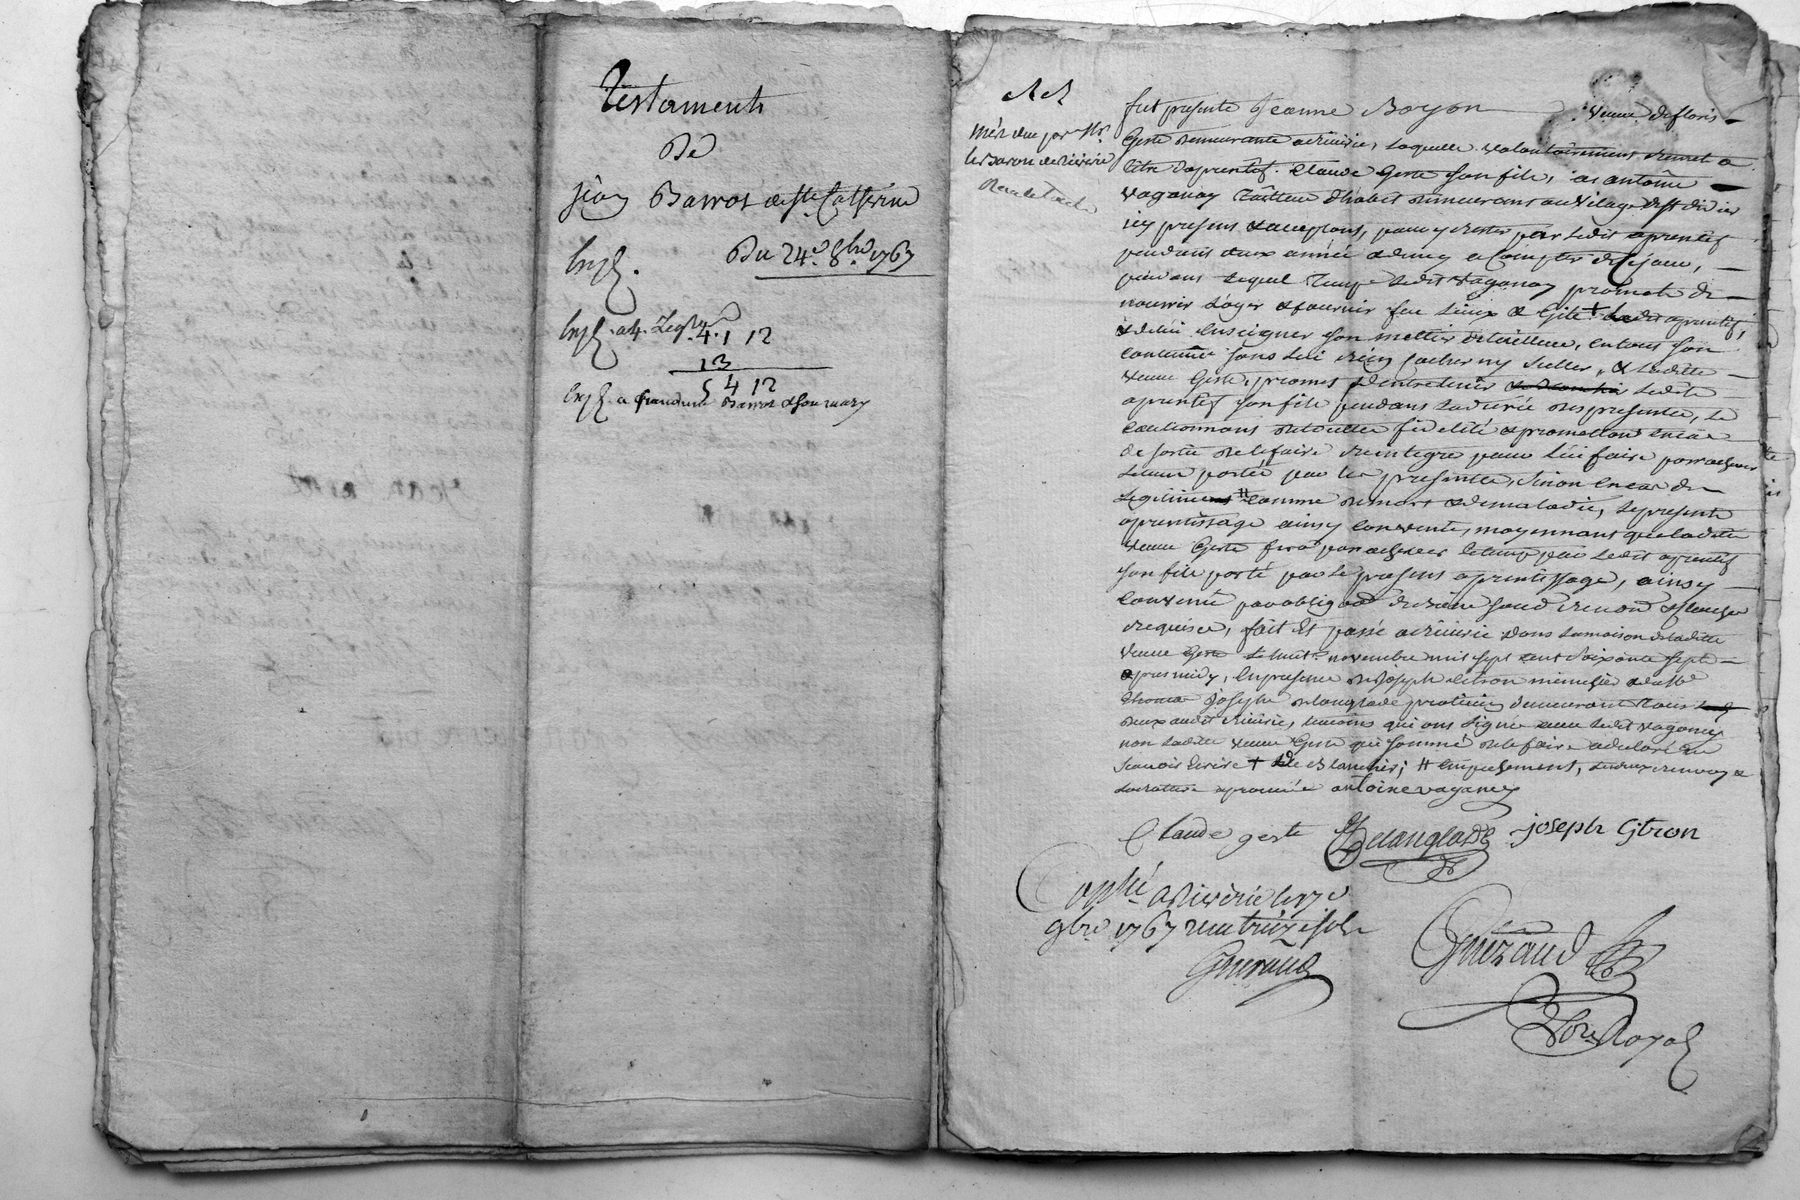 Testament
De
jean Barrot de Ste Catherine
Du 24e. 8bre 1767
Exp.
Exp. a 4.
4. 1 12
13
5 4 12
Exp. a Barrot & son mary
fut presente Jeanne Boyon veuve de floris
Geste demeurante a Riverie, laquelle volontairement remet a
titre d'aprentif Claude Geste son fils, a antoine
vaganay tailleur d'habit demeurant au vilage de st didier
icy present & acceptant, pour y rester par ledit aprentif
pendant deux année & demy a compter de ce jour,
pendant lequel temps ledit vaganay promet de
nourrir loger & fournir feu lieux & Gite + audit aprentif,
& de lui enseigner son mettier de tailleur, en tout son
contenue sans lui rien cacher ny , & ladite
veuve Geste promet d'entretenir ledit
aprentif son fils pendant la durée des presentes, le
cautionnant de touttes fidelité & promettant en cas
de sortie de le faire reintegre pour lui faire parachever
le temps porté par les presentes, sinon en cas de
legitime # comme de mort & de maladie, le present
aprentissage ainsy convenu, moyennant que ladite
veuve Geste fera parachever le temps par ledit aprentif
son fils porté par le present aprentissage, ainsy
convenu par obligaon de biens soud renond & clauses
requises, fait et passé a Riverie dans la maison de ladite
veuve Geste le huit novembre mil sept cent soixante sept
apres midy, en presence de joseph Citron menusier & de sr
thomas joseph delanglade praticien demeurant tous
deux audit Riverie, temoins qui ont signé avec ledit vaganay
non ladite veuve Geste qui sommé de le faire a declaré ne
scavoir ecrire + & blanchir; # empechement, les deux renvoy &
la rature aprouvée antoine vaganay
Claude geste Delanglade joseph Citron
Conllé a Riverie le 17e
9bre 1767 reçu treize sols
Gueraud
Gueraud
Nore Royal